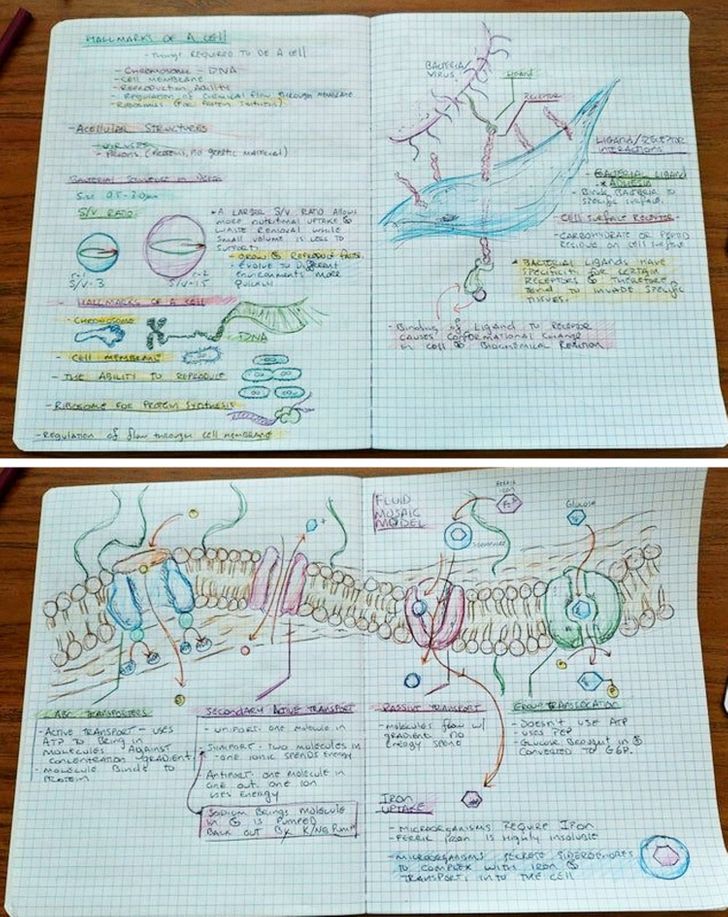 HALLMARKS OF A CELL
Things REQUIRED TO BE A CELL
- CHROMOSOME - DNA
- CELL MEMBRANE
- REPRODUCTION ABILITY
- REGULATION OF CHEMICAL FLOW THROUGH MEMBRANE
- RIBOSOMES (FOR PROTEIN SYNTHESIS)
- ACELLULAR STRUCTURES
- VIRUSES
- PRIONS (PROTEINS, NO GENETIC MATERIAL)
BACTERIAL STRUCTURE IN
SIZE 0.5-2.0µm
S/V RATIO
r=1
S/V=3
r=2
S/V=1.5
A LARGER S/V RATIO ALLOWS
MORE NUTRITIONAL UPTAKE &
WASTE REMOVAL WHILE
SMALL VOLUME IS LESS TO
SUPPORT:
- GROW & REPRODUCE FASTER
- EVOLVE TO DIFFERENT
ENVIRONMENTS MORE
QUICKLY
HALLMARKS OF A CELL
- CHROMOSOME
DNA
- CELL MEMBRANE
- THE ABILITY TO REPRODUCE
- RIBOSOME FOR PROTEIN SYNTHESIS
- REGULATION OF flow THROUGH CELL MEMBRANE
BACTERIA/
VIRUS
LIGAND
RECEPTOR
LIGAND/RECEPTOR
INTERACTIONS
- BACTERIAL LIGAND
ADHESIN
- BINDS BACTERIA TO
SPECIFIC SURFACE
- CELL SURFACE RECEPTOR
- CARBOHYDRATE OR PEPTID
RESIDUE ON CELL SURFACE
BACTERIAL LIGANDS HAVE
SPECIFICITY FOR CERTAIN
RECEPTORS & THEREFORE
TEND TO INVADE SPECIFIC
TISSUES.
- BINDING OF LIGAND TO RECEPTOR
CAUSES CONFORMATIONAL CHANGE
IN CELL & BIOCHEMICAL REACTION
FLUID
MOSAIC
MODEL
FERRIC
ION
Glucose
ABC TRANSPORTERS
- ACTIVE TRANSPORT - USES
ATP TO BRING IN
MOLECULES AGAINST
CONCENTRATION GRADIENT
- MOLECULE BINDS TO
PROTEIN
SECONDARY ACTIVE TRANSPORT
- UNIPORT- ONE MOLECULE IN
- SYMPORT- TWO MOLECULES IN
- ONE IONIC SPENDS ENERGY
- ANTIPORT- ONE MOLECULE IN
ONE OUT, ONE ION
USES ENERGY
SODIUM BRINGS MOLECULE
IN & IS PUMPED
BACK OUT BY K/Na PUMP
PASSIVE TRANSPORT
- MOLECULES FLOW W/
GRADIENT, NO
ENERGY SPENT
GROUP TRANSLOCATION
- DOESN'T USE ATP
- USES PEP
- GLUCOSE BROUGHT IN &
CONVERTED TO G6P.
IRON
UPTAKE
- MICROORGANISMS REQUIRE IRON
- FERRIC IRON IS HIGHLY INSOLUBLE
- MICROORGANISMS SECRETE SIDEROPHORES
TO COMPLEX WITH IRON &
TRANSPORT INTO THE CELL